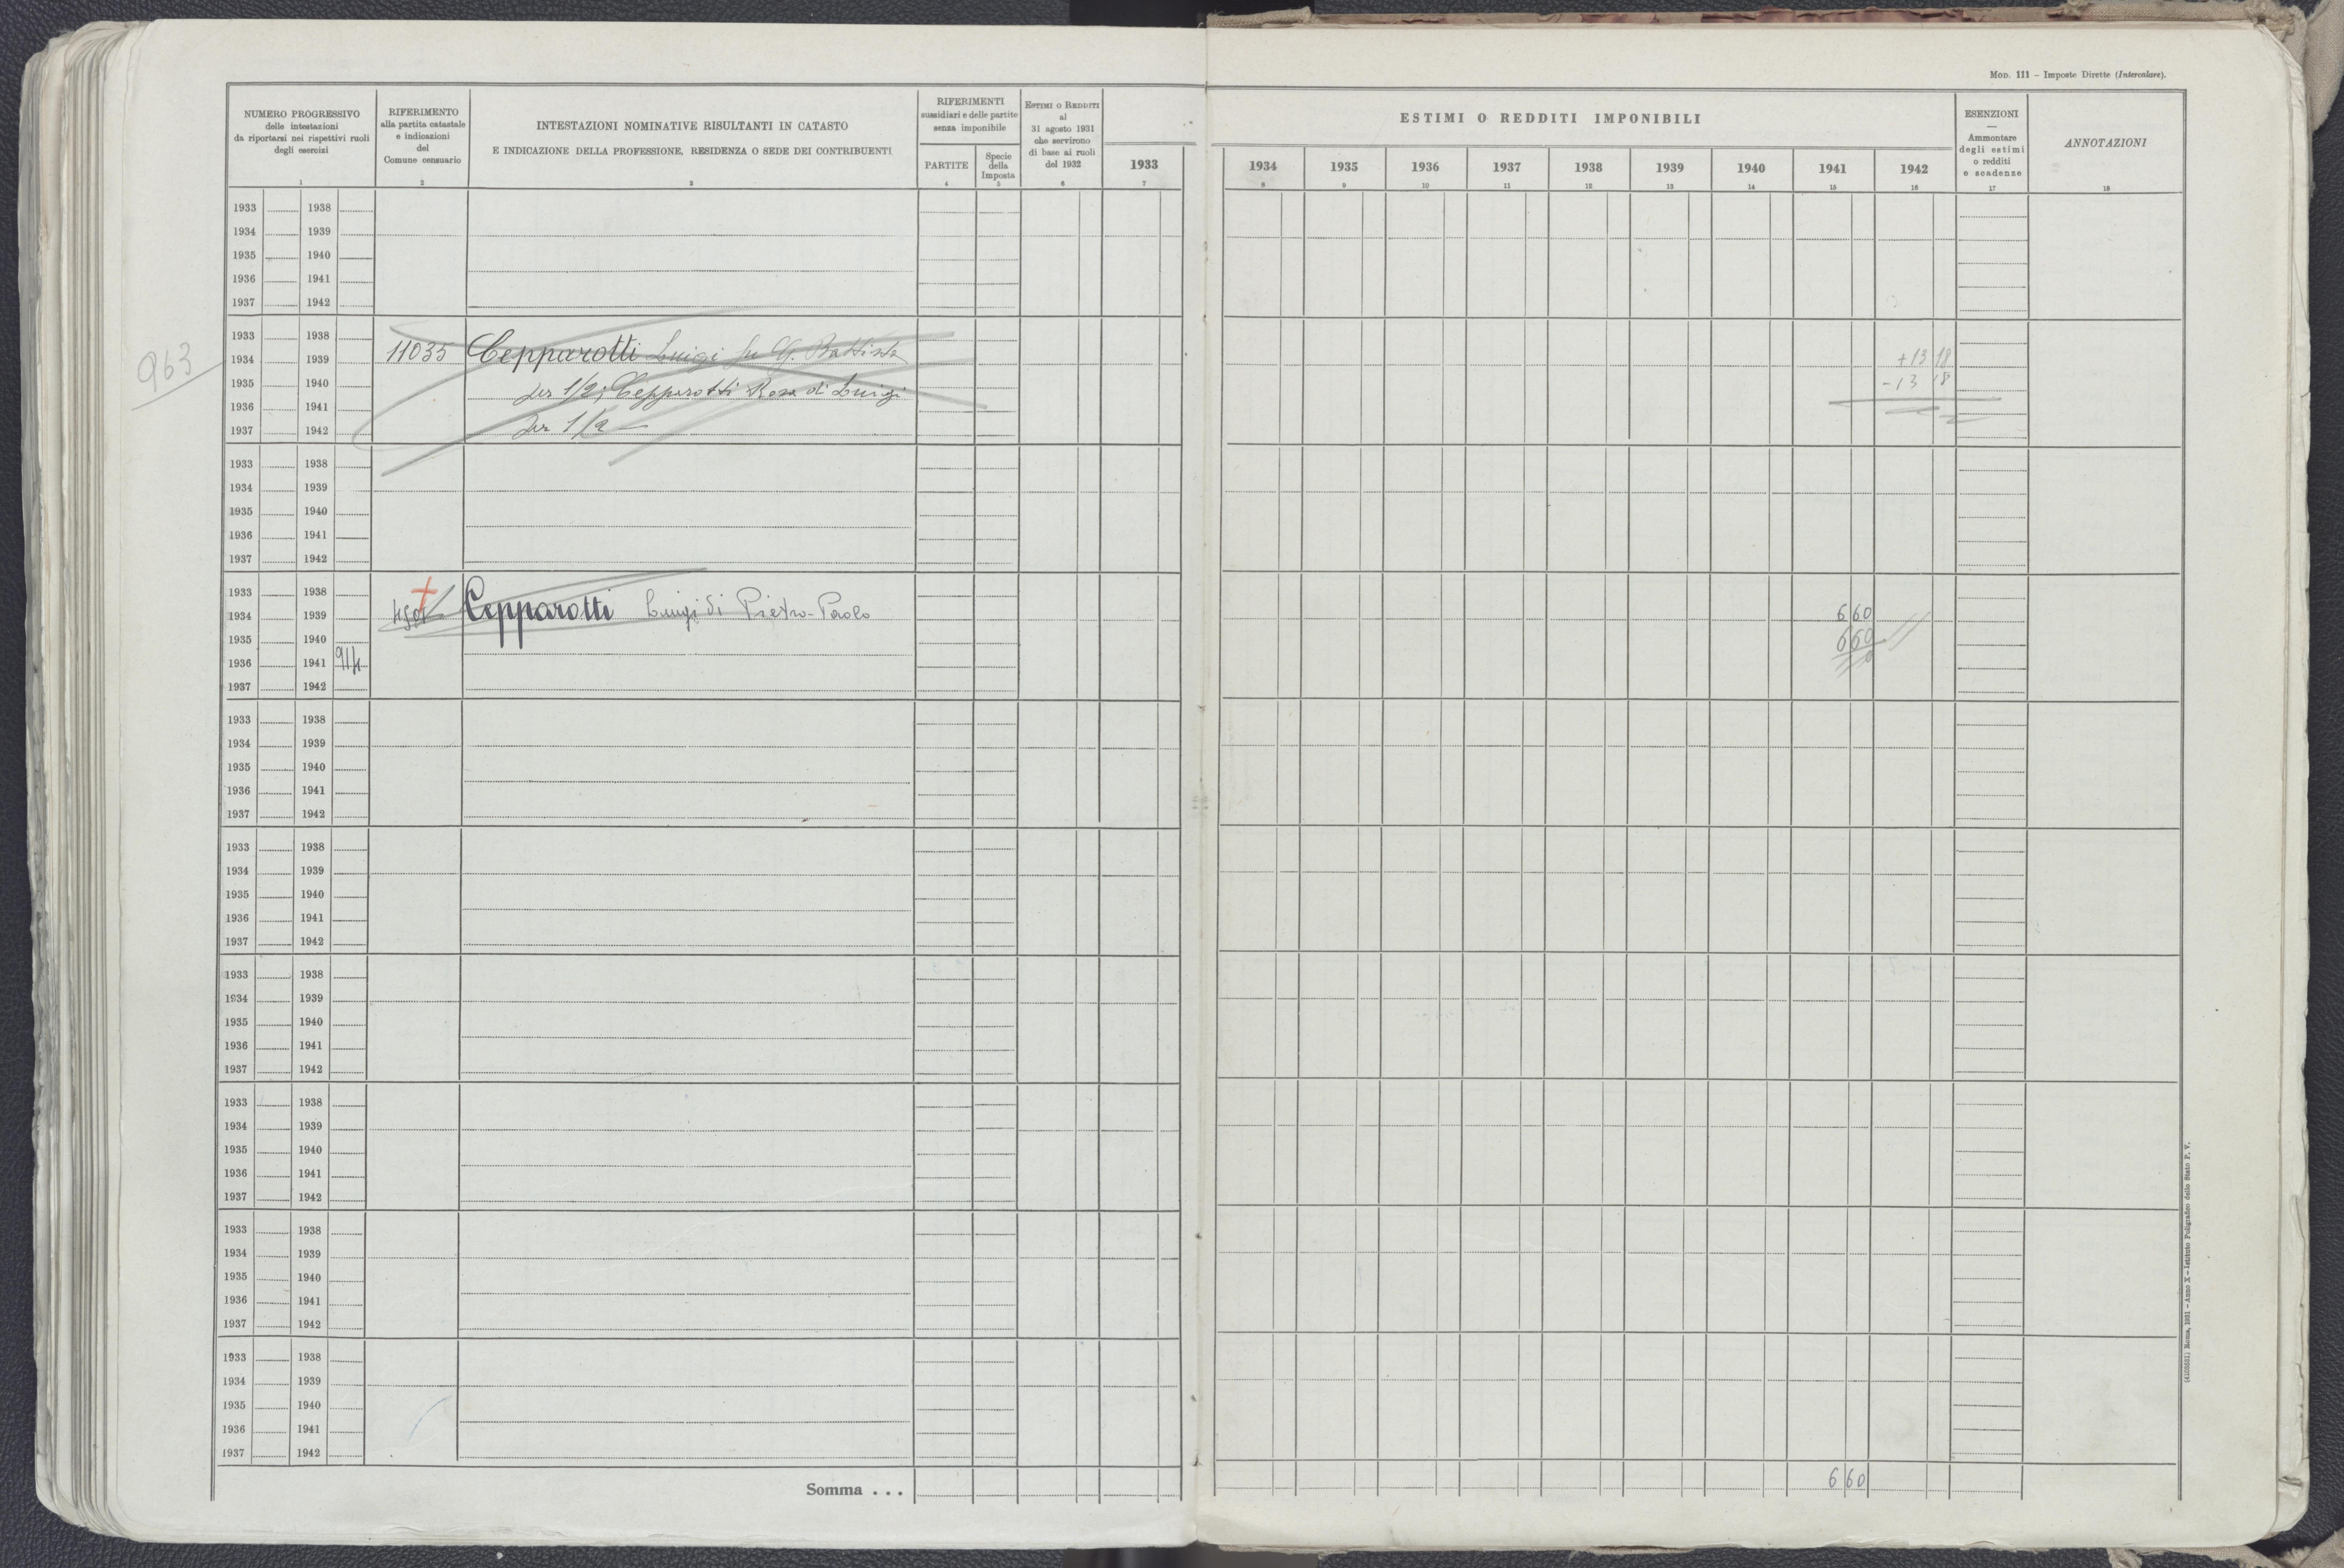 MOD. 111 – Imposte Dirette (Intercalare).
NUMERO PROGRESSIVO
delle intestazioni
da riportarsi nei rispettivi ruoli
degli esercizi
1
RIFERIMENTO
alla partita catastale
e indicazioni
del
Comune censuario
2
INTESTAZIONI NOMINATIVE RISULTANTI IN CATASTO
E INDICAZIONE DELLA PROFESSIONE, RESIDENZA O SEDE DEI CONTRIBUENTI
3
RIFERIMENTI
sussidiari e delle partite
senza imponibile
PARTITE
4
Specie
della
Imposta
5
ESTIMI O REDDITI
al
31 agosto 1931
che servirono
di base ai ruoli
del 1932
6
ESTIMI O REDDITI IMPONIBILI
1933
7
1934
8
1935
9
1936
10
1937
11
1938
12
1939
13
1940
14
1941
15
1942
16
ESENZIONI
—
Ammontare
degli estimi
o redditi
e scadenze
17
ANNOTAZIONI
18
1933 1938
1934 1939
1935 1940
1936 1941
1937 1942
963
1933 1938
1934 1939 11035 Cepparotti Luigi fu G. Battista +13 18
1935 1940 per 1/2; Cepparotti Rosa di Luigi -13 18
1936 1941
1937 1942 per 1/2
1933 1938
1934 1939
1935 1940
1936 1941
1937 1942
1933 1938
1934 1939 Cepparotti Luigi di Pietro-Paolo 6 60
1935 1940 6 60
1936 1941 914
1937 1942
1933 1938
1934 1939
1935 1940
1936 1941
1937 1942
1933 1938
1934 1939
1935 1940
1936 1941
1937 1942
1933 1938
1934 1939
1935 1940
1936 1941
1937 1942
1933 1938
1934 1939
1935 1940
1936 1941
1937 1942
1933 1938
1934 1939
1935 1940
1936 1941
1937 1942
1933 1938
1934 1939
1935 1940
1936 1941
1937 1942
Somma . . . 6 60
Roma, 1931 – Anno X – Istituto Poligrafico dello Stato P. V.